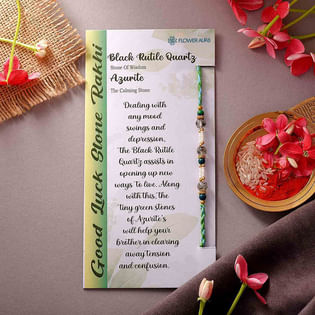 FLOWER AURA
Good Luck Stone Rakhi
Black Rutile Quartz
Stone Of Wisdom
Azurite
The Calming Stone
Dealing with
any mood
swings and
depression,
The Black Rutile
Quartz assists in
opening up new
ways to live. Along
with this, the
tiny green stones
of Azurite's
will help your
brother in clearing
away tension
and confusion.